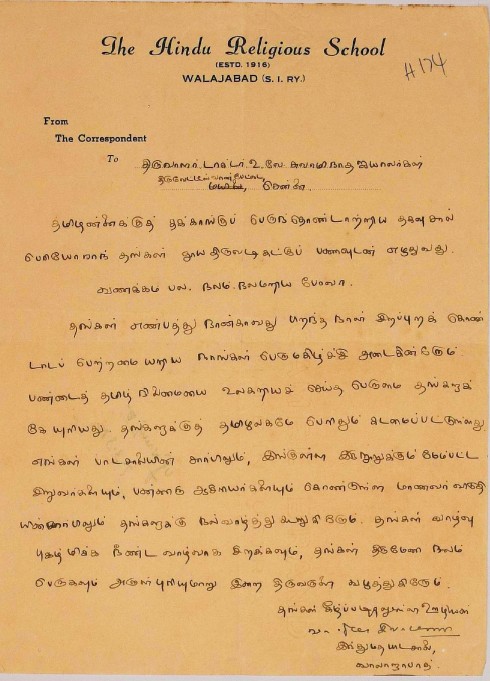 The Hindu Religious School
(ESTD. 1916)
WALAJABAD (S. I. RY.)
H 174
From
The Correspondent
To திருவாளர். டாக்டர். உ. வே. சுவாமிநாத ஐயரவர்கள்
திருவேட்டீஸ்வரன்பேட்டை,
சென்னை.
தமிழன்னைக்குத் தக்காங்குப் பெருந்தொண்டாற்றிய தகவுசால்
பெரியோராந் தங்கள் தூய திருவடிகட்குப் பணிவுடன் எழுதுவது.
வணக்கம் பல. நலம். நலமறிய பேரவா.
தங்கள் எண்பத்து நான்காவது பிறந்த நாள் சிறப்புறக் கொண்
டாடப் பெற்றமையறிய நாங்கள் பெருமகிழ்ச்சி அடைகின்றோம்.
பண்டைத் தமிழ் செம்மையை உலகறியச் செய்த பெருமை தங்களுக்
கேயுரியது. தங்களுக்குத் தமிழுலகமே பெரிதும் கடமைப்பட்டுள்ளது.
எங்கள் பாடசாலையின் சார்பிலும், இங்குள்ள இருநூறுக்கும் மேம்பட்ட
சிறுவர்களையும், பன்னிரு ஆசிரியர்களையும் கொண்டுள்ள மாணவர் விடுதி
யின்சார்பிலும் தங்களுக்கு நல்வாழ்த்து கூறுகிறோம். தங்கள் வாழ்வு
புகழ் மிக்க நீண்ட வாழ்வாக இருக்கவும், தங்கள் திருமேனி நலம்
பெருகவும் அருள் புரியுமாறு இறை திருவருளை வழுத்துகிறோம்.
தங்கள் கீழ்ப்படிதலுள்ள ஊழியன்
வா.
இந்துமத பாடசாலை,
வாலாஜாபாத்.